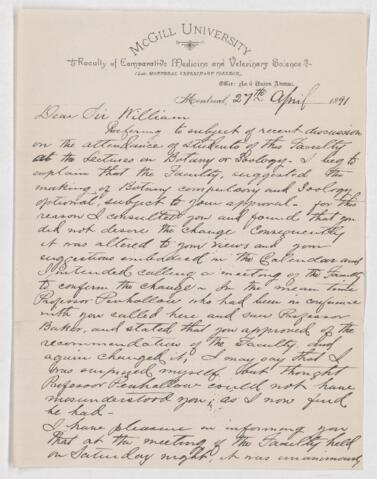 McGILL UNIVERSITY
Faculty of Comparative Medicine and Veterinary Science
(Late MONTREAL VETERINARY COLLEGE)
Office: No 6 Union Avenue,
Montreal, 27th April 1891
Dear Sir William
Referring to subject of recent discussion
on the attendance of students of this Faculty
at the Lectures on Botany or Zoology - I beg to
explain that the Faculty, suggested the
making of Botany compulsory and Zoology
optional, subject to your approval - for this
reason I consulted you and found that you
did not desire the change Consequently
it was altered to your views and your
suggestions embodied in the Calendar and
I intended calling a meeting of the Faculty
to confirm the change - In the mean time
Professor Penhallow who had been in conference
with you called here and saw Professor
Baker, and stated that you approved of the
recommendations of the Faculty, and
again changed it, I may say that I
was surprised myself but thought
Professor Penhallow could not have
misunderstood you, as I now find
he had -
I have pleasure in informing you
that at the meeting of the Faculty held
on Saturday night, it was unanimously